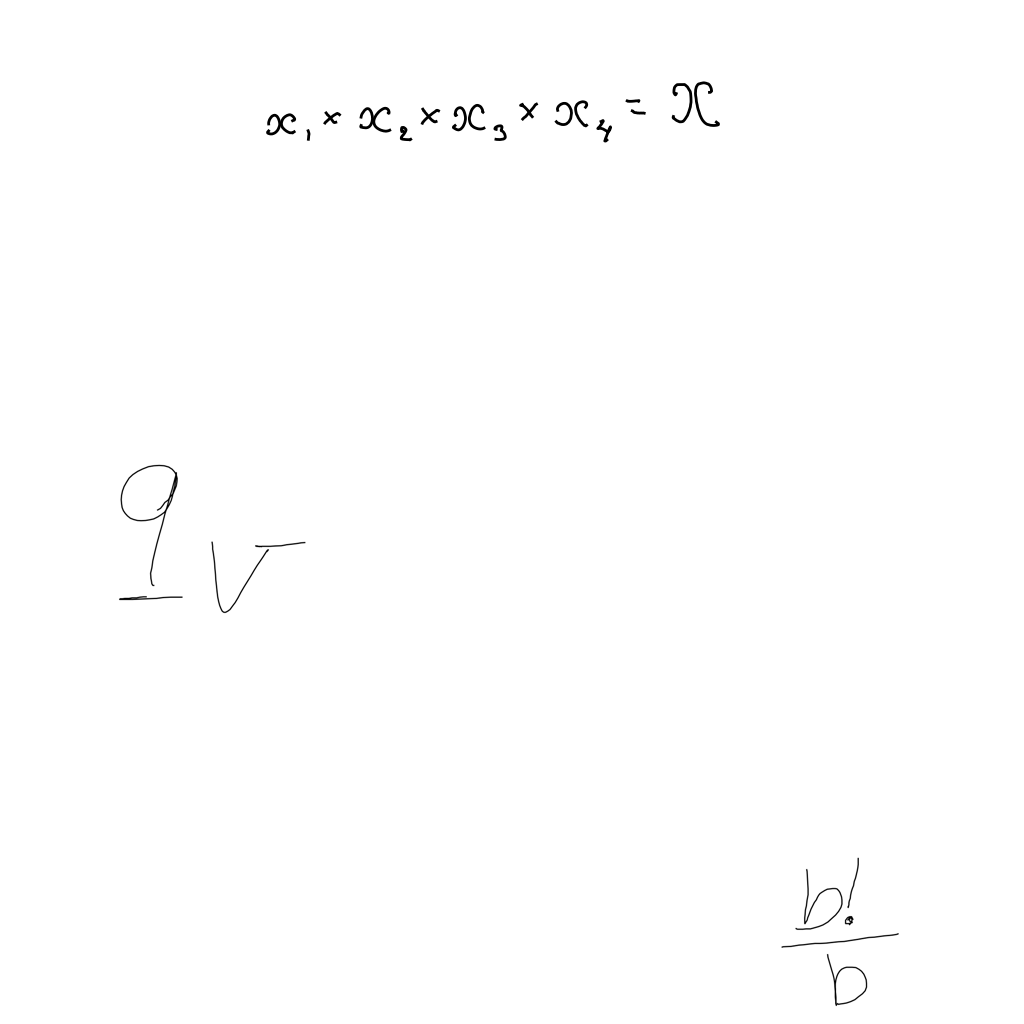 x₁ × x₂ × x₃ × x₄ = X
b!
b